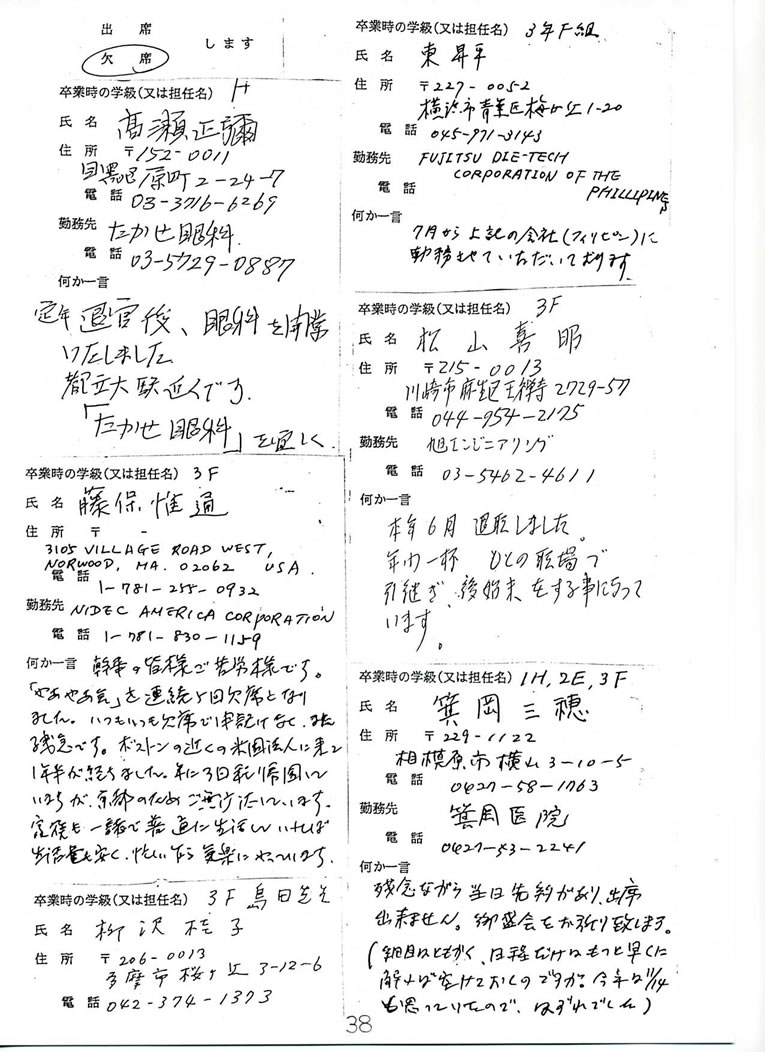 出席
欠席
します
卒業時の学級(又は担任名) H
氏名 高瀬正彌
住所 〒152-0011
目黒区原町2-24-7
電話 03-3716-6269
勤務先 たかせ眼科
電話 03-5729-0887
何か一言
定年退官後、眼科を開業
いたしました
都立大駅近くです.
「たかせ眼科」を宜しく
卒業時の学級(又は担任名) 3F
氏名 藤保惟通
住所 〒 -
3105 VILLAGE ROAD WEST,
NORWOOD, MA. 02062 USA.
電話 1-781-255-0932
勤務先 NIDEC AMERICA CORPORATION
電話 1-781-830-1159
何か一言 幹事の皆様ご苦労様です。
「やあやあ会」を連続5回欠席となり
ました。いつもいつも欠席で申訳けなく、
残念です。ボストンの近くの米国法人に来て
1年半が経ちました。年に3回程帰国して
いますが、京都のためご無沙汰しています。
家族も一緒で普通に生活していれば
生活費も安く、忙しいながら気楽にやっています.
卒業時の学級(又は担任名) 3F 島田先生
氏名 柳沢桂子
住所 〒206-0013
多摩市桜ヶ丘3-12-6
電話 042-374-1373
卒業時の学級(又は担任名) 3年F組
氏名 東昇平
住所 〒227-0052
横浜市青葉区梅が丘1-20
電話 045-971-3143
勤務先 FUJITSU DIE-TECH
CORPORATION OF THE
PHILLIPINES
電話
何か一言
7月から上記の会社(フィリピン)に
勤務させていただいております.
卒業時の学級(又は担任名) 3F
氏名 松山喜昭
住所 〒215-0013
川崎市麻生区王禅寺2729-57
電話 044-954-2175
勤務先 旭エンジニアリング
電話 03-5462-4611
何か一言
本年6月退職しました。
年内一杯 もとの職場で
引継ぎ、後始末をする事になって
います。
卒業時の学級(又は担任名) 1H, 2E, 3F
氏名 箕岡三穂
住所 〒229-1122
相模原市横山3-10-5
電話 0427-58-1763
勤務先 箕岡医院
電話 0427-53-2241
何か一言
残念ながら当日先約があり、出席
出来ません。御盛会をお祈り致します。
(細目はともかく、日程だけはもっと早くに
解れば空けておくのですが。今年は11/14
と思っていたので、はずれでした)
38